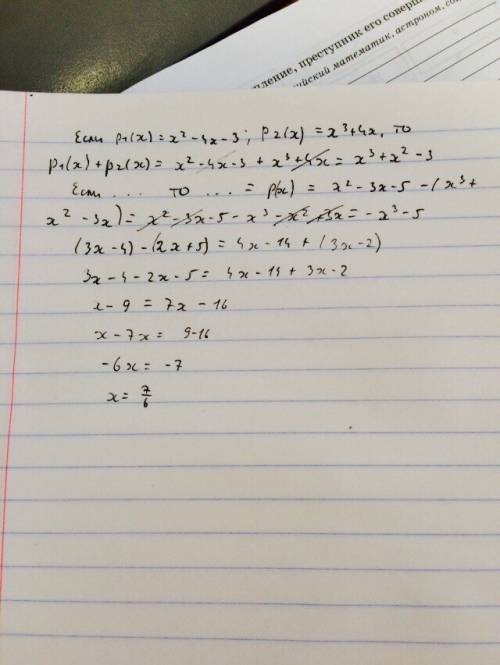 пление, преступник его соверш
ийский математик, астроном, со
Если p₁(x) = x² - 4x - 3; p₂(x) = x³ + 4x, то
p₁(x) + p₂(x) = x² - 4x - 3 + x³ + 4x = x³ + x² - 3
Если ... то ... = p(x) = x² - 3x - 5 - (x³ +
x² - 3x) = x² - 3x - 5 - x³ - x² + 3x = -x³ - 5
(3x - 4) - (2x + 5) = 4x - 14 + (3x - 2)
3x - 4 - 2x - 5 = 4x - 14 + 3x - 2
x - 9 = 7x - 16
x - 7x = 9 - 16
-6x = -7
x = 7/6